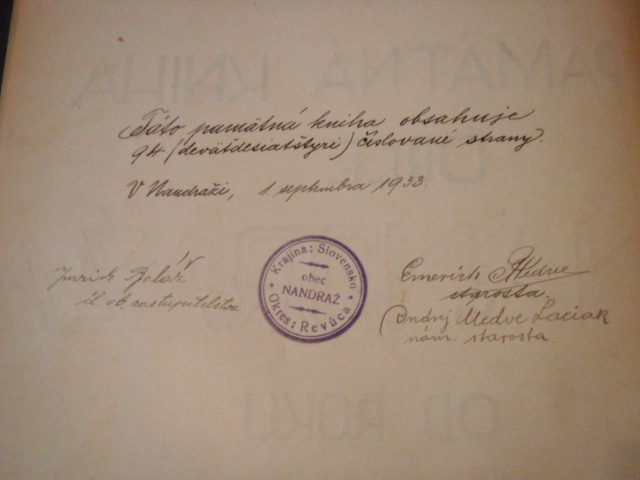 Táto pamätná kniha obsahuje
94 (deväťdesiatštyri) číslované strany.
V Nandraži, 1. septembra 1933.
Krajina: Slovensko
obec
NANDRAŽ
Okres: Revúca
čl. ob. zastupiteľstva
Emerich Medve
starosta.
Ondrej Medve Laciak
nám. starosta.
PAMÄTNÁ KNIHA
OD ROKU